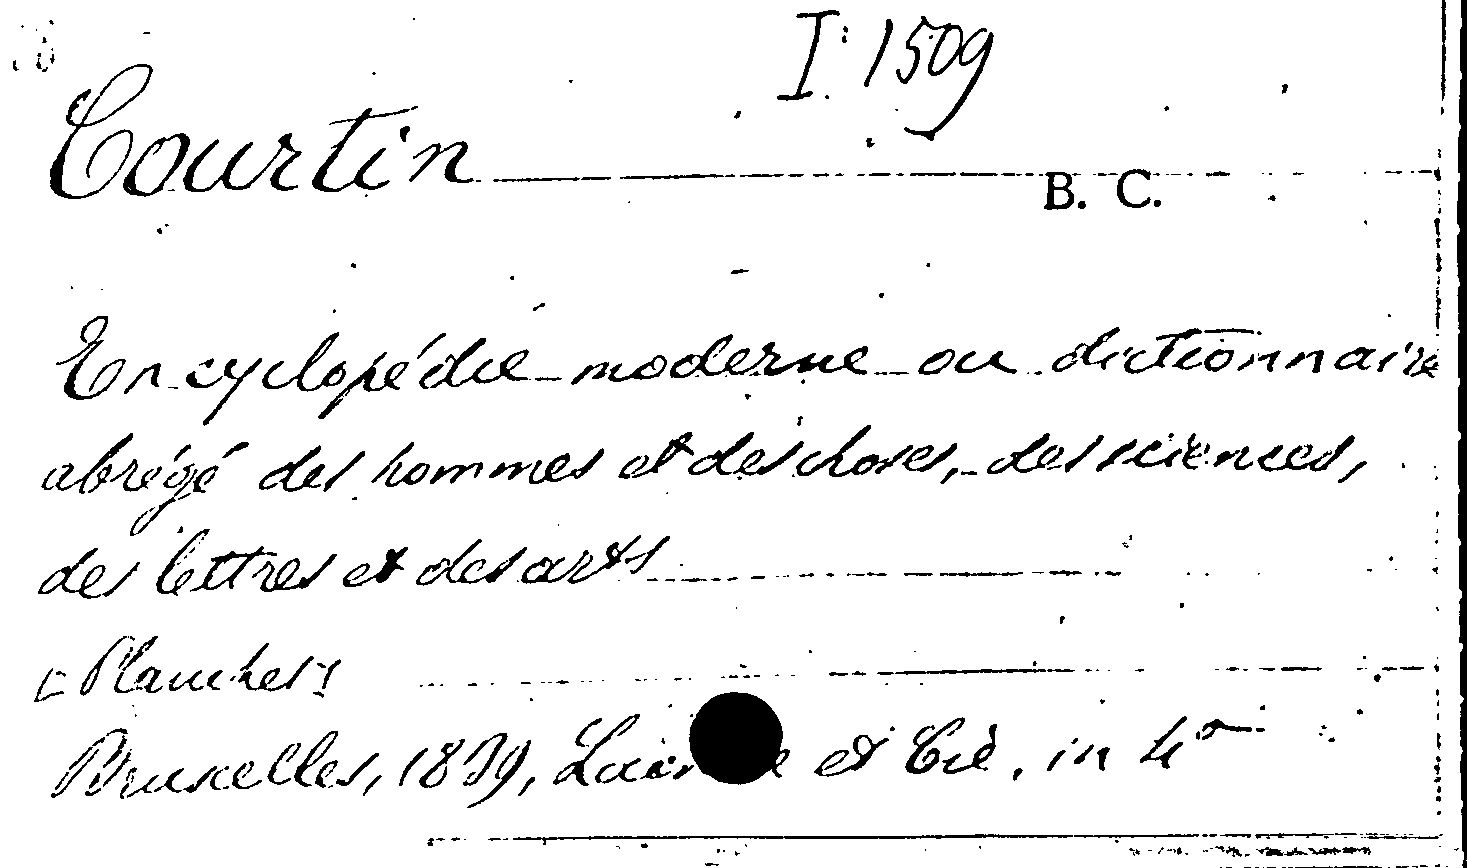 I. 1509
Courtin
B. C.
Encyclopédie moderne ou dictionnaire
abrégé des hommes et des choses, des sciences,
des lettres et des arts
[Planches]
Bruxelles, 1839, et Cie, in 4°